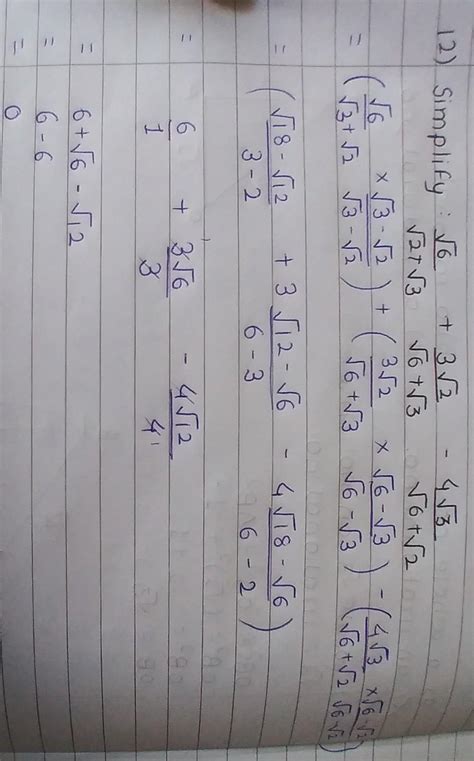 12) Simplify : √6/√2+√3 + 3√2/√6+√3 - 4√3/√6+√2
= (√6/√3+√2 × √3-√2/√3-√2) + (3√2/√6+√3 × √6-√3/√6-√3) - (4√3/√6+√2 × √6-√2/√6-√2)
= (√18-√12/3-2 + 3√12-√6/6-3 - 4√18-√6/6-2)
= 6/1 + 3√6/3 - 4√12/4
= 6+√6-√12
= 6-6
= 0